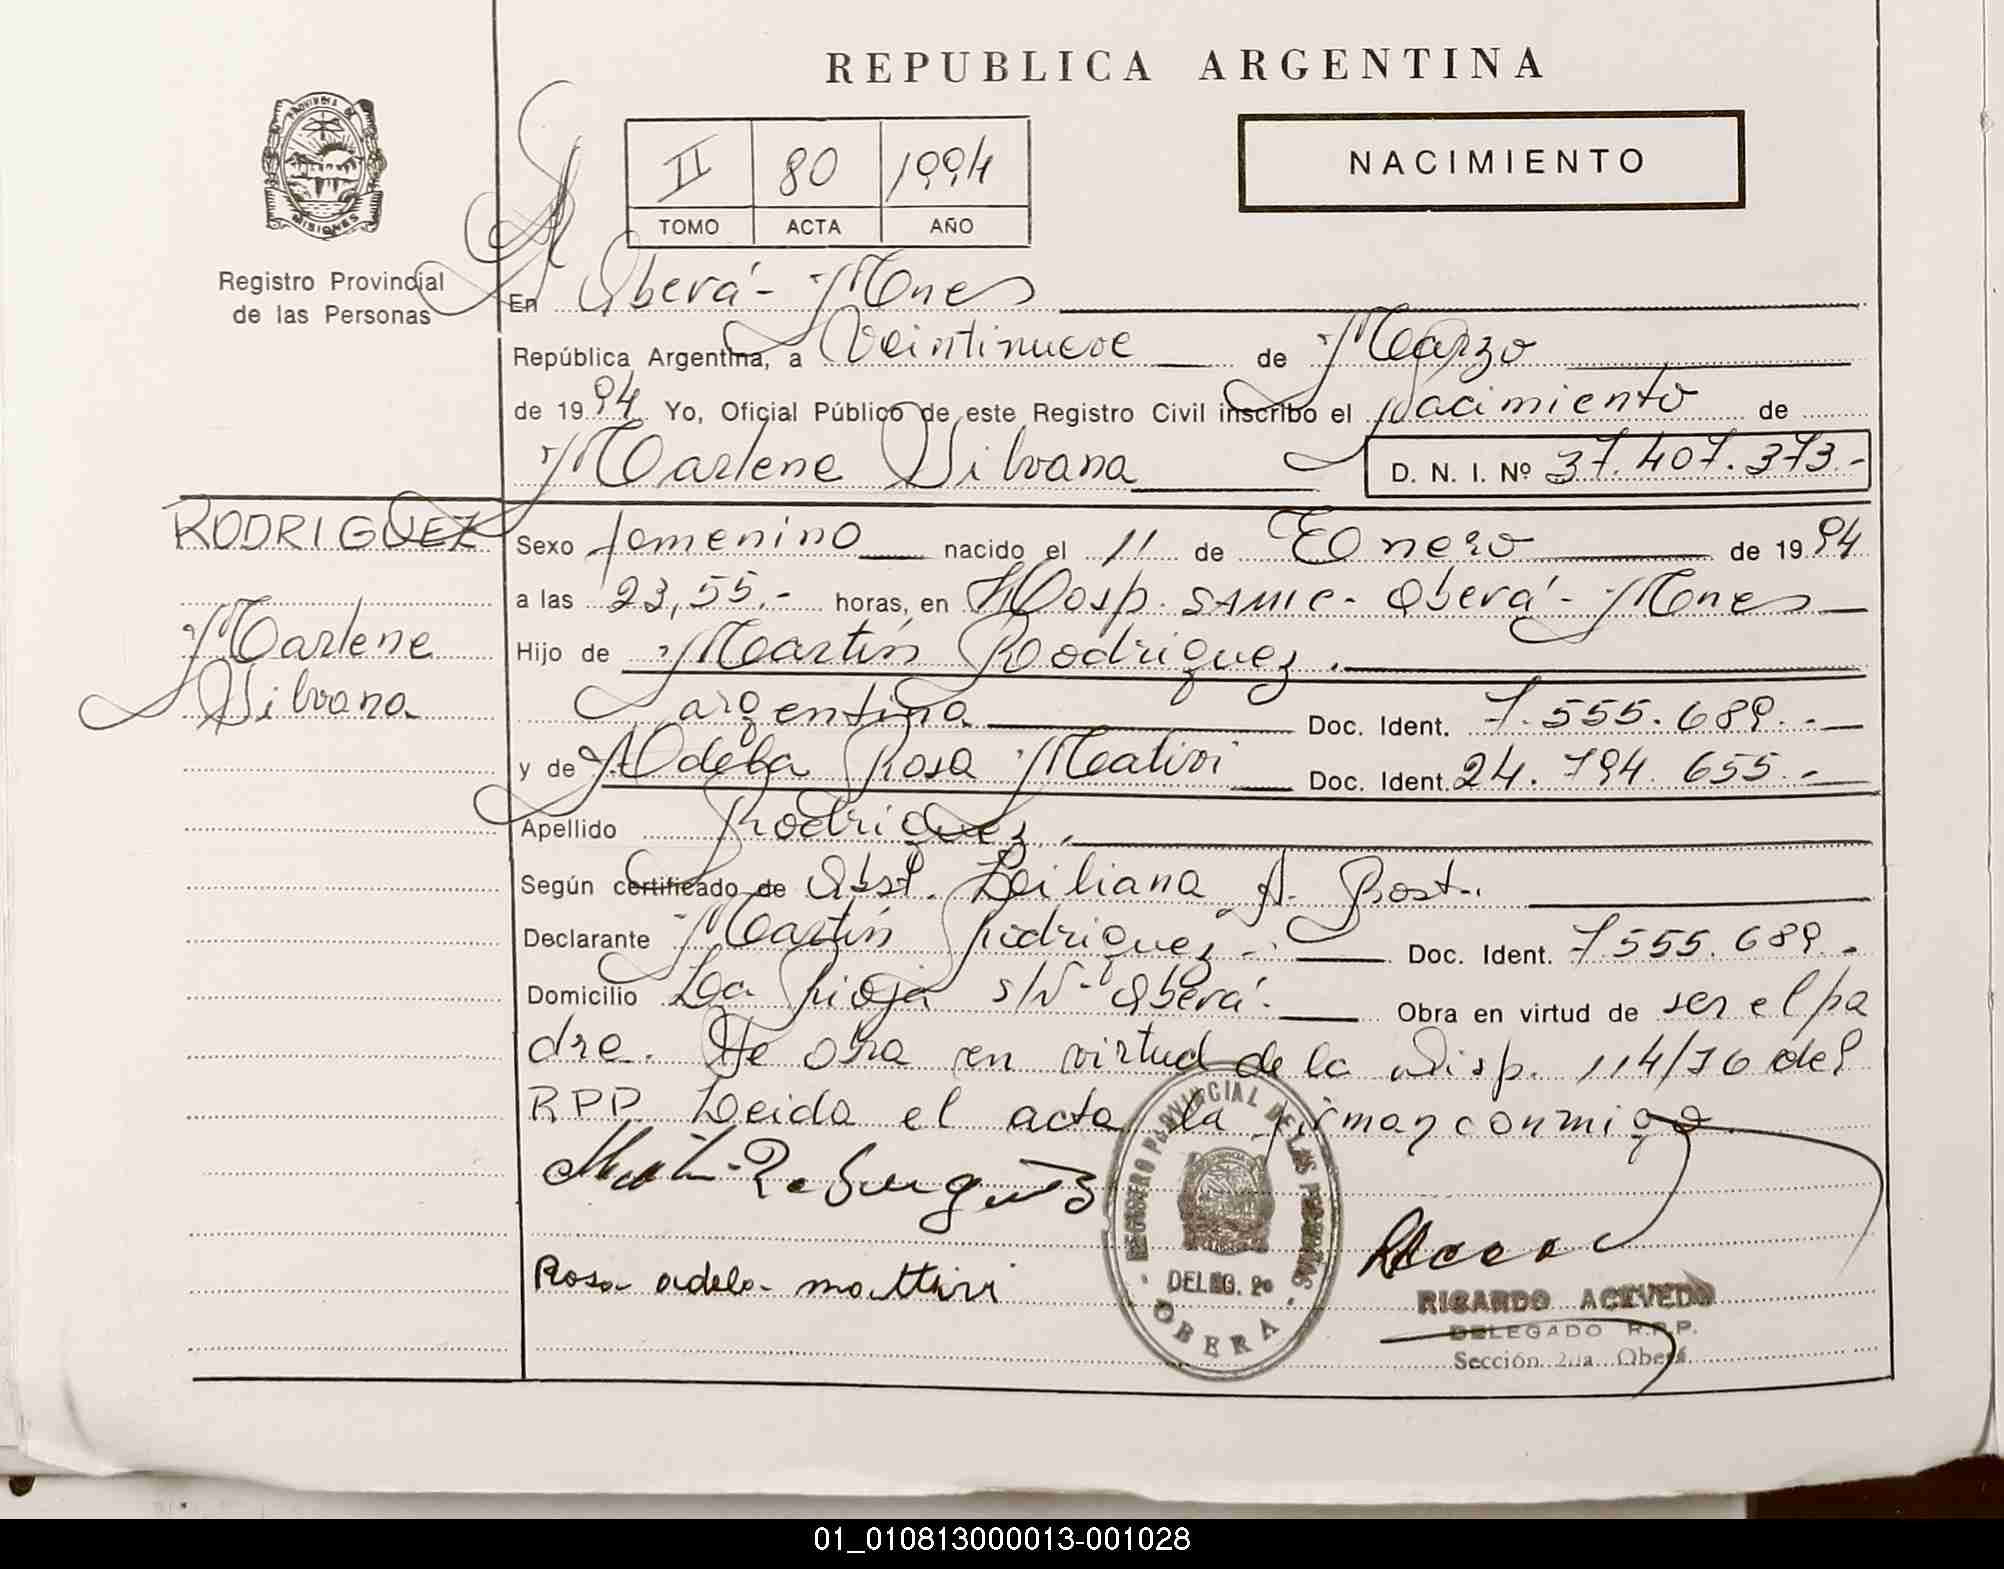 REPUBLICA ARGENTINA
PROVINCIA DE MISIONES
Registro Provincial
de las Personas
II 80 1994
TOMO ACTA AÑO
NACIMIENTO
En Oberá - Mnes
República Argentina, a Veintinueve de Marzo
de 1994 Yo, Oficial Público de este Registro Civil inscribo el nacimiento de
Marlene Silvana D. N. I. Nº 37.407.373.-
RODRIGUEZ
Marlene
Silvana
Sexo femenino nacido el 11 de Enero de 1994
a las 23,55.- horas, en Hosp. SAMIC - Oberá - Mnes
Hijo de Martín Rodriguez.
argentina Doc. Ident. 7.555.689.-
y de Adela Rosa Mativi Doc. Ident. 24.794.655.-
Apellido Rodriguez.
Según certificado de Obst. Liliana A. Rost.
Declarante Martín Rodriguez.- Doc. Ident. 7.555.689.-
Domicilio La Rioja s/N - Oberá. Obra en virtud de ser el pa
dre. Se obra en virtud de la Disp. 114/76 del
RPP Leida el acta la firman conmigo.
Rosa adela mattivi
REGISTRO PROVINCIAL DE LAS PERSONAS
DELEG. 2º
OBERA
RICARDO ACEVEDO
DELEGADO R.P.P.
Sección 2da Oberá
01_010813000013-001028